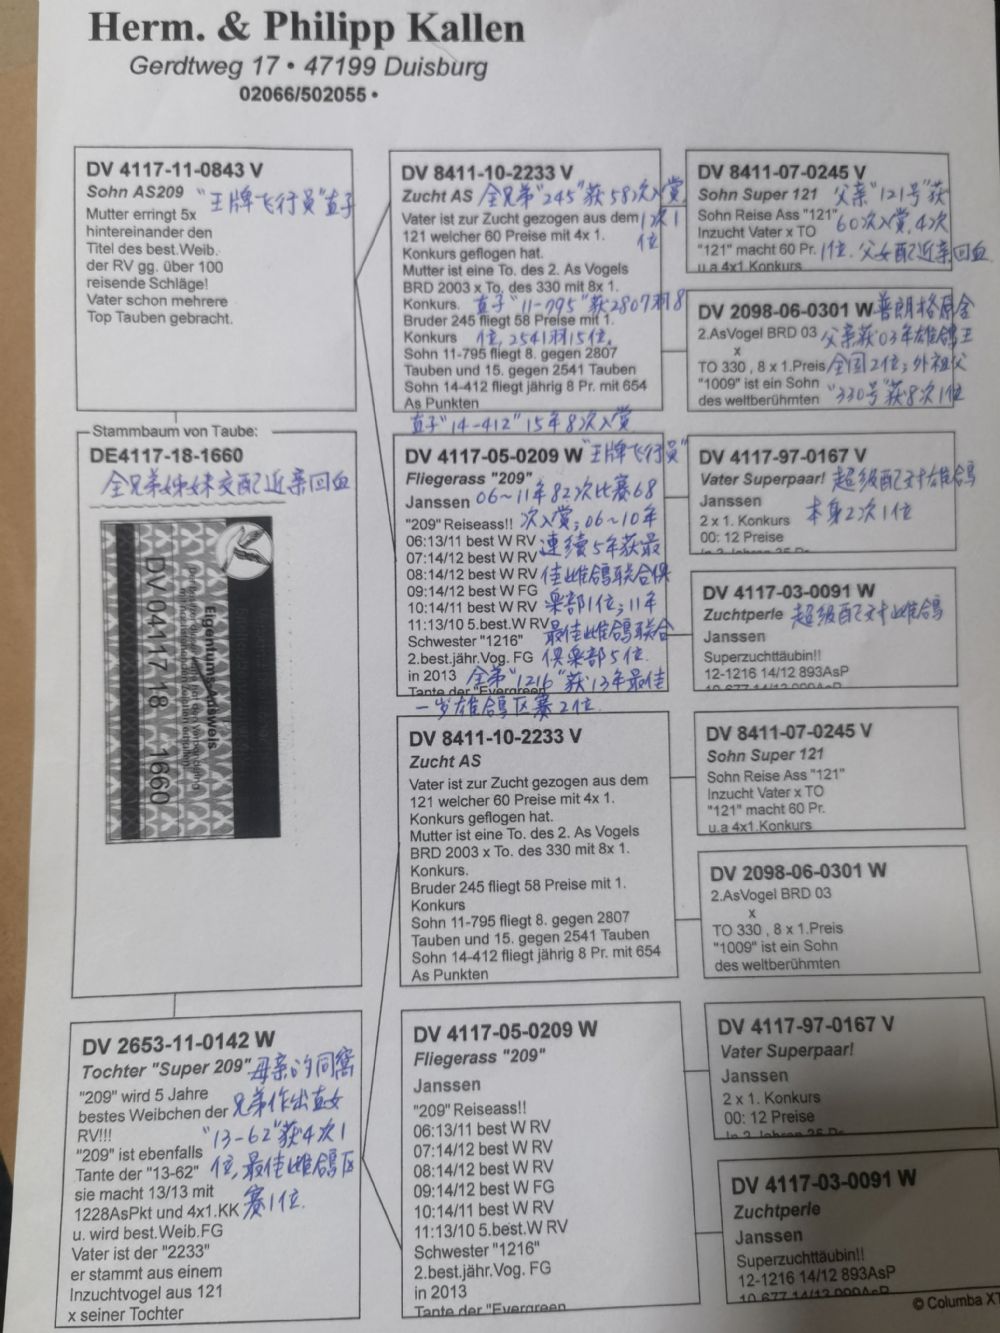 Herm. & Philipp Kallen
Gerdtweg 17 • 47199 Duisburg
02066/502055 •
DV 4117-11-0843 V
Sohn AS209 "王牌飞行员"直子
Mutter erringt 5x
hintereinander den
Titel des best.Weib.
der RV gg. über 100
reisende Schläge!
Vater schon mehrere
Top Tauben gebracht.
Stammbaum von Taube:
DE4117-18-1660
全兄弟姊妹交配近亲回血
DV 04117 18 1660
Eigentums-Ausweis
DV 2653-11-0142 W
Tochter "Super 209" 母亲的同窝
"209" wird 5 Jahre
bestes Weibchen der 兄弟作出直女
RV!!!
"13-62"获4次1
"209" ist ebenfalls
Tante der "13-62" 位,最佳雌鸽区
sie macht 13/13 mit
1228AsPkt und 4x1.KK 赛1位.
u. wird best.Weib.FG
Vater ist der "2233"
er stammt aus einem
Inzuchtvogel aus 121
x seiner Tochter
DV 8411-10-2233 V
Zucht AS 全兄弟"245"获58次入赏
Vater ist zur Zucht gezogen aus dem 1次1
121 welcher 60 Preise mit 4x 1. 位
Konkurs geflogen hat.
Mutter ist eine To. des 2. As Vogels
BRD 2003 x To. des 330 mit 8x 1.
Konkurs. 直子"11-795"获2807羽8
Bruder 245 fliegt 58 Preise mit 1.
Konkurs 位,2541羽15位.
Sohn 11-795 fliegt 8. gegen 2807
Tauben und 15. gegen 2541 Tauben
Sohn 14-412 fliegt jährig 8 Pr. mit 654
As Punkten
直子"14-412"15年8次入赏
DV 4117-05-0209 W "王牌飞行员"
Fliegerass "209"
Janssen 06~11年82次比赛68
"209" Reiseass!! 次入赏;06~10年
06:13/11 best W RV 连续5年获最
07:14/12 best W RV
08:14/12 best W RV 佳雌鸽联合俱
09:14/12 best W FG
10:14/11 best W RV 乐部1位;11年
11:13/10 5.best.W RV 最佳雌鸽联合
Schwester "1216"
2.best.jähr.Vog. FG 俱乐部5位.
in 2013 全弟"1216"获13年最佳
Tante der "Evergreen
一岁雄鸽区赛2位.
DV 8411-10-2233 V
Zucht AS
Vater ist zur Zucht gezogen aus dem
121 welcher 60 Preise mit 4x 1.
Konkurs geflogen hat.
Mutter ist eine To. des 2. As Vogels
BRD 2003 x To. des 330 mit 8x 1.
Konkurs.
Bruder 245 fliegt 58 Preise mit 1.
Konkurs
Sohn 11-795 fliegt 8. gegen 2807
Tauben und 15. gegen 2541 Tauben
Sohn 14-412 fliegt jährig 8 Pr. mit 654
As Punkten
DV 4117-05-0209 W
Fliegerass "209"
Janssen
"209" Reiseass!!
06:13/11 best W RV
07:14/12 best W RV
08:14/12 best W RV
09:14/12 best W FG
10:14/11 best W RV
11:13/10 5.best.W RV
Schwester "1216"
2.best.jähr.Vog. FG
in 2013
Tante der "Evergreen
DV 8411-07-0245 V
Sohn Super 121 父亲"121号"获
Sohn Reise Ass "121" 60次入赏,4次
Inzucht Vater x TO
"121" macht 60 Pr. 1位.父女配近亲回血
u.a 4x1.Konkurs
DV 2098-06-0301 W 普朗格原舍
2.AsVogel BRD 03 父亲获03年雄鸽王
x
TO 330 , 8 x 1.Preis 全国2位;外祖父
"1009" ist ein Sohn
des weltberühmten "330号"获8次1位
DV 4117-97-0167 V
Vater Superpaar! 超级配对雄鸽
Janssen
2 x 1. Konkurs 本身2次1位
00: 12 Preise
In 3 Jahren 35 Pr.
DV 4117-03-0091 W
Zuchtperle 超级配对雌鸽
Janssen
Superzuchttäubin!!
12-1216 14/12 893AsP
DV 8411-07-0245 V
Sohn Super 121
Sohn Reise Ass "121"
Inzucht Vater x TO
"121" macht 60 Pr.
u.a 4x1.Konkurs
DV 2098-06-0301 W
2.AsVogel BRD 03
x
TO 330 , 8 x 1.Preis
"1009" ist ein Sohn
des weltberühmten
DV 4117-97-0167 V
Vater Superpaar!
Janssen
2 x 1. Konkurs
00: 12 Preise
DV 4117-03-0091 W
Zuchtperle
Janssen
Superzuchttäubin!!
12-1216 14/12 893AsP
© Columba XT